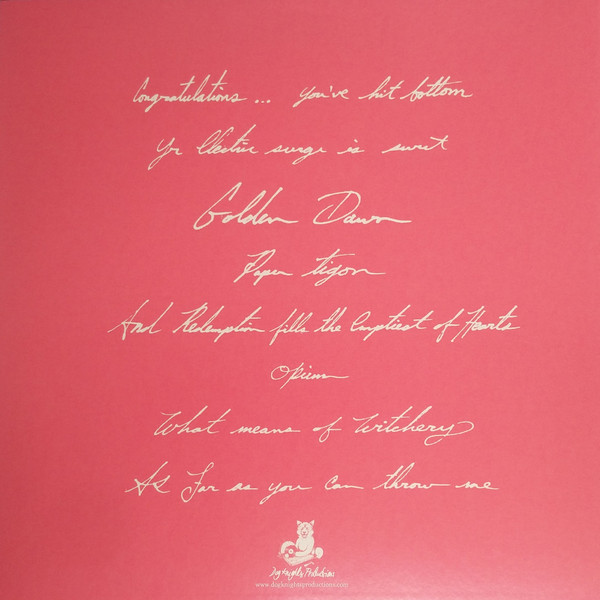 Congratulations... you've hit bottom
Yr Electric surge is sweet
Golden Dawn
Paper tigon
And Redemption fills the Emptiest of Hearts
Opium
What means of Witchery
As Far as you can throw me
Dog Knights Productions
www.dogknightsproductions.com